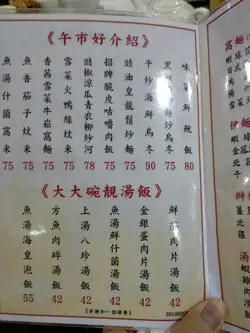 《午市好介紹》
味菜鮮魷飯 80
干炒海鮮烏冬 90
豉油皇龍鬚炒麵 75
招牌脆皮咕嚕肉飯 75
豉椒涼瓜青衣柳炒河 75
雪菜火鴨絲炆米 75
香茜雪菜牛崧窩麵 75
魚香茄子炆米 75
魚湯什菌窩米 75
《大大碗靚湯飯》
鮮茄肉片湯飯 42
金銀蛋肉片湯飯 42
魚湯鮮什菌湯飯 42
上湯八珍湯飯 42
方魚肉碎湯飯 42
魚湯海皇泡飯 55
窩麵